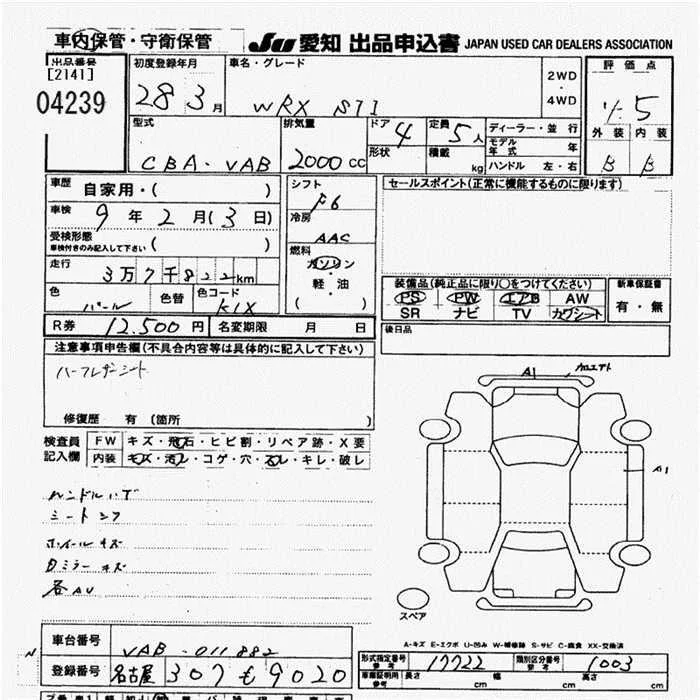 車内保管・守衛保管
Ju 愛知 出品申込書 JAPAN USED CAR DEALERS ASSOCIATION
出品番号
[2141]
04239
初度登録年月
28 3月
車名・グレード
WRX STI
2WD
・
4WD
評価点
5
外装 内装
B B
型式
CBA-VAB
排気量
2000cc
ドア 4
形状
定員 5人
積載 kg
ディーラー・並行
モデル年式 年
ハンドル 左・右
車歴 自家用・( )
車検 9年2月(3日)
受検形態
車検付きのみ記入して下さい ( )
走行 3万7千822km
色 パール 色替 色コード K1X
シフト
F6
冷房
AAC
燃料
ガソリン
・
軽・油
( )
セールスポイント(正常に機能するものに限ります)
装備品(純正品に限り○をつけてください)
PS PW エアB AW
SR ナビ TV カワシート
新車保証書
有・無
R券 12,500円 名変期限 月 日
後日品
注意事項申告欄(不具合内容等は具体的に記入して下さい)
ハーフレザーシート
修復歴 有 (箇所 )
検査員記入欄
FW キズ・飛石・ヒビ割・リペア跡・X要
内装 キズ・汚レ・コゲ・穴・スレ・キレ・破レ
ハンドルハゲ
シートシワ
ホイールキズ
Dミラーキズ
各AU
A1
A1
スペア
A-キズ E-エクボ U-凹み W-補修跡 S-サビ C-腐食 XX-交換済
車台番号 VAB-011882
登録番号 名古屋 307 も 9020
形式指定番号 参考 17722 類別区分番号 参考 1003
車庫証明用 参考 長さ 幅 高さ